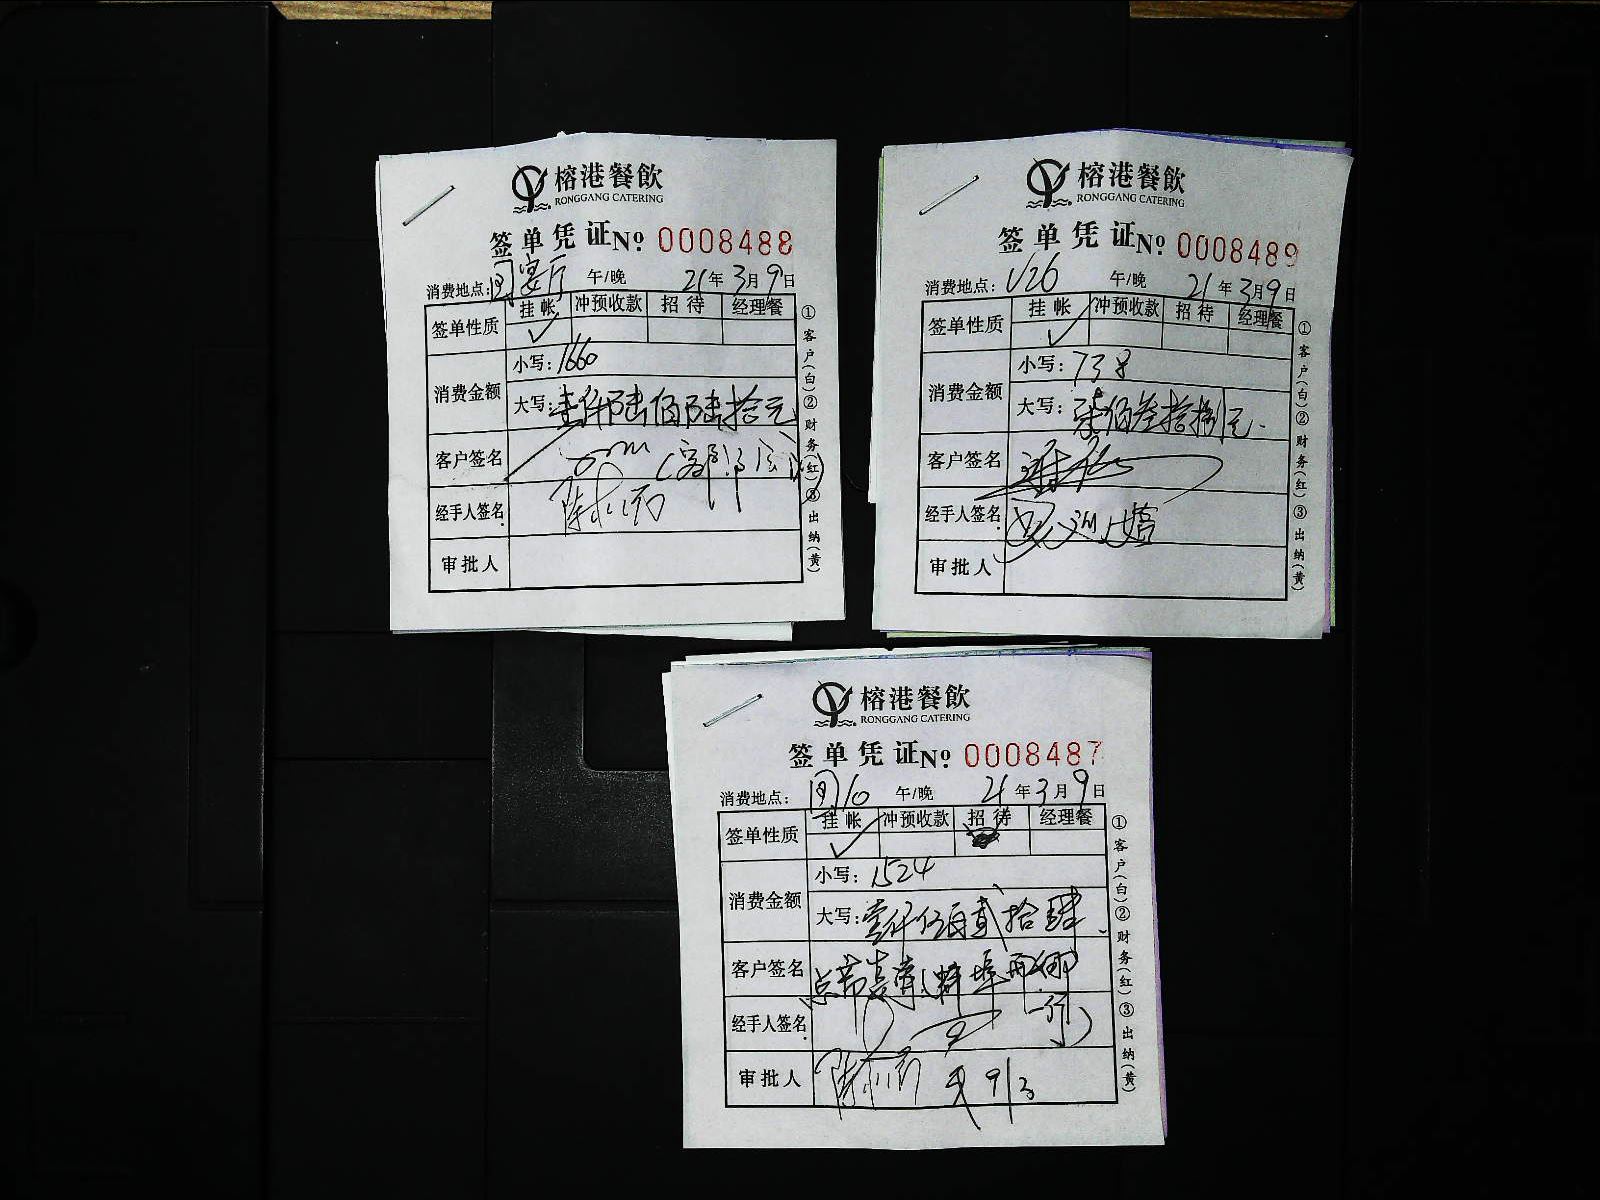 榕港餐飲
RONGGANG CATERING
签单凭证 № 0008488
消费地点: 宴厅 午/晚 21年3月9日
签单性质 挂帐 冲预收款 招待 经理餐
✓
消费金额 小写: 1660
大写: 壹仟陆佰陆拾元
客户签名
经手人签名
审批人
①客户(白)②财务(红)③出纳(黄)
榕港餐飲
RONGGANG CATERING
签单凭证 № 0008489
消费地点: V26 午/晚 21年3月9日
签单性质 挂帐 冲预收款 招待 经理餐
✓
消费金额 小写: 738
大写: 柒佰叁拾捌元.
客户签名
经手人签名
审批人
①客户(白)②财务(红)③出纳(黄)
榕港餐飲
RONGGANG CATERING
签单凭证 № 0008487
消费地点: 午/晚 21年3月9日
签单性质 挂帐 冲预收款 招待 经理餐
✓
消费金额 小写: 1524
大写: 壹仟伍佰贰拾肆
客户签名
经手人签名
审批人 9/3
①客户(白)②财务(红)③出纳(黄)